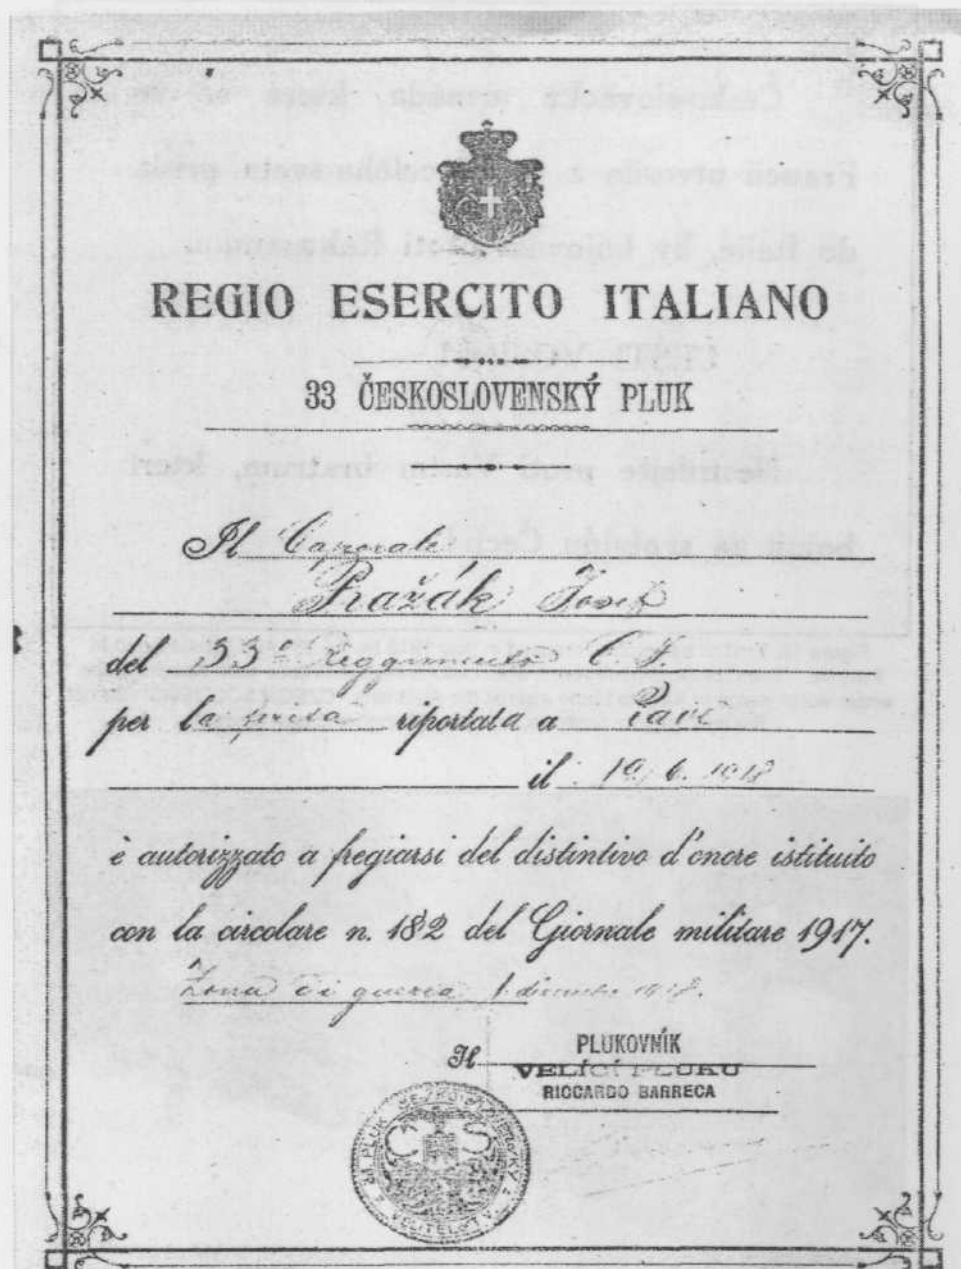 REGIO ESERCITO ITALIANO
33 ČESKOSLOVENSKÝ PLUK
Il Caporale
Pražák Josef
del 33º Reggimento C. S.
per la ferita riportata a Piave
il 19. 6. 1918
è autorizzato a fregiarsi del distintivo d'onore istituito
con la circolare n. 182 del Giornale militare 1917.
Zona di guerra 1 dicembre 1918.
Il PLUKOVNÍK
VELÍCÍ PLUKU
RICCARDO BARRECA